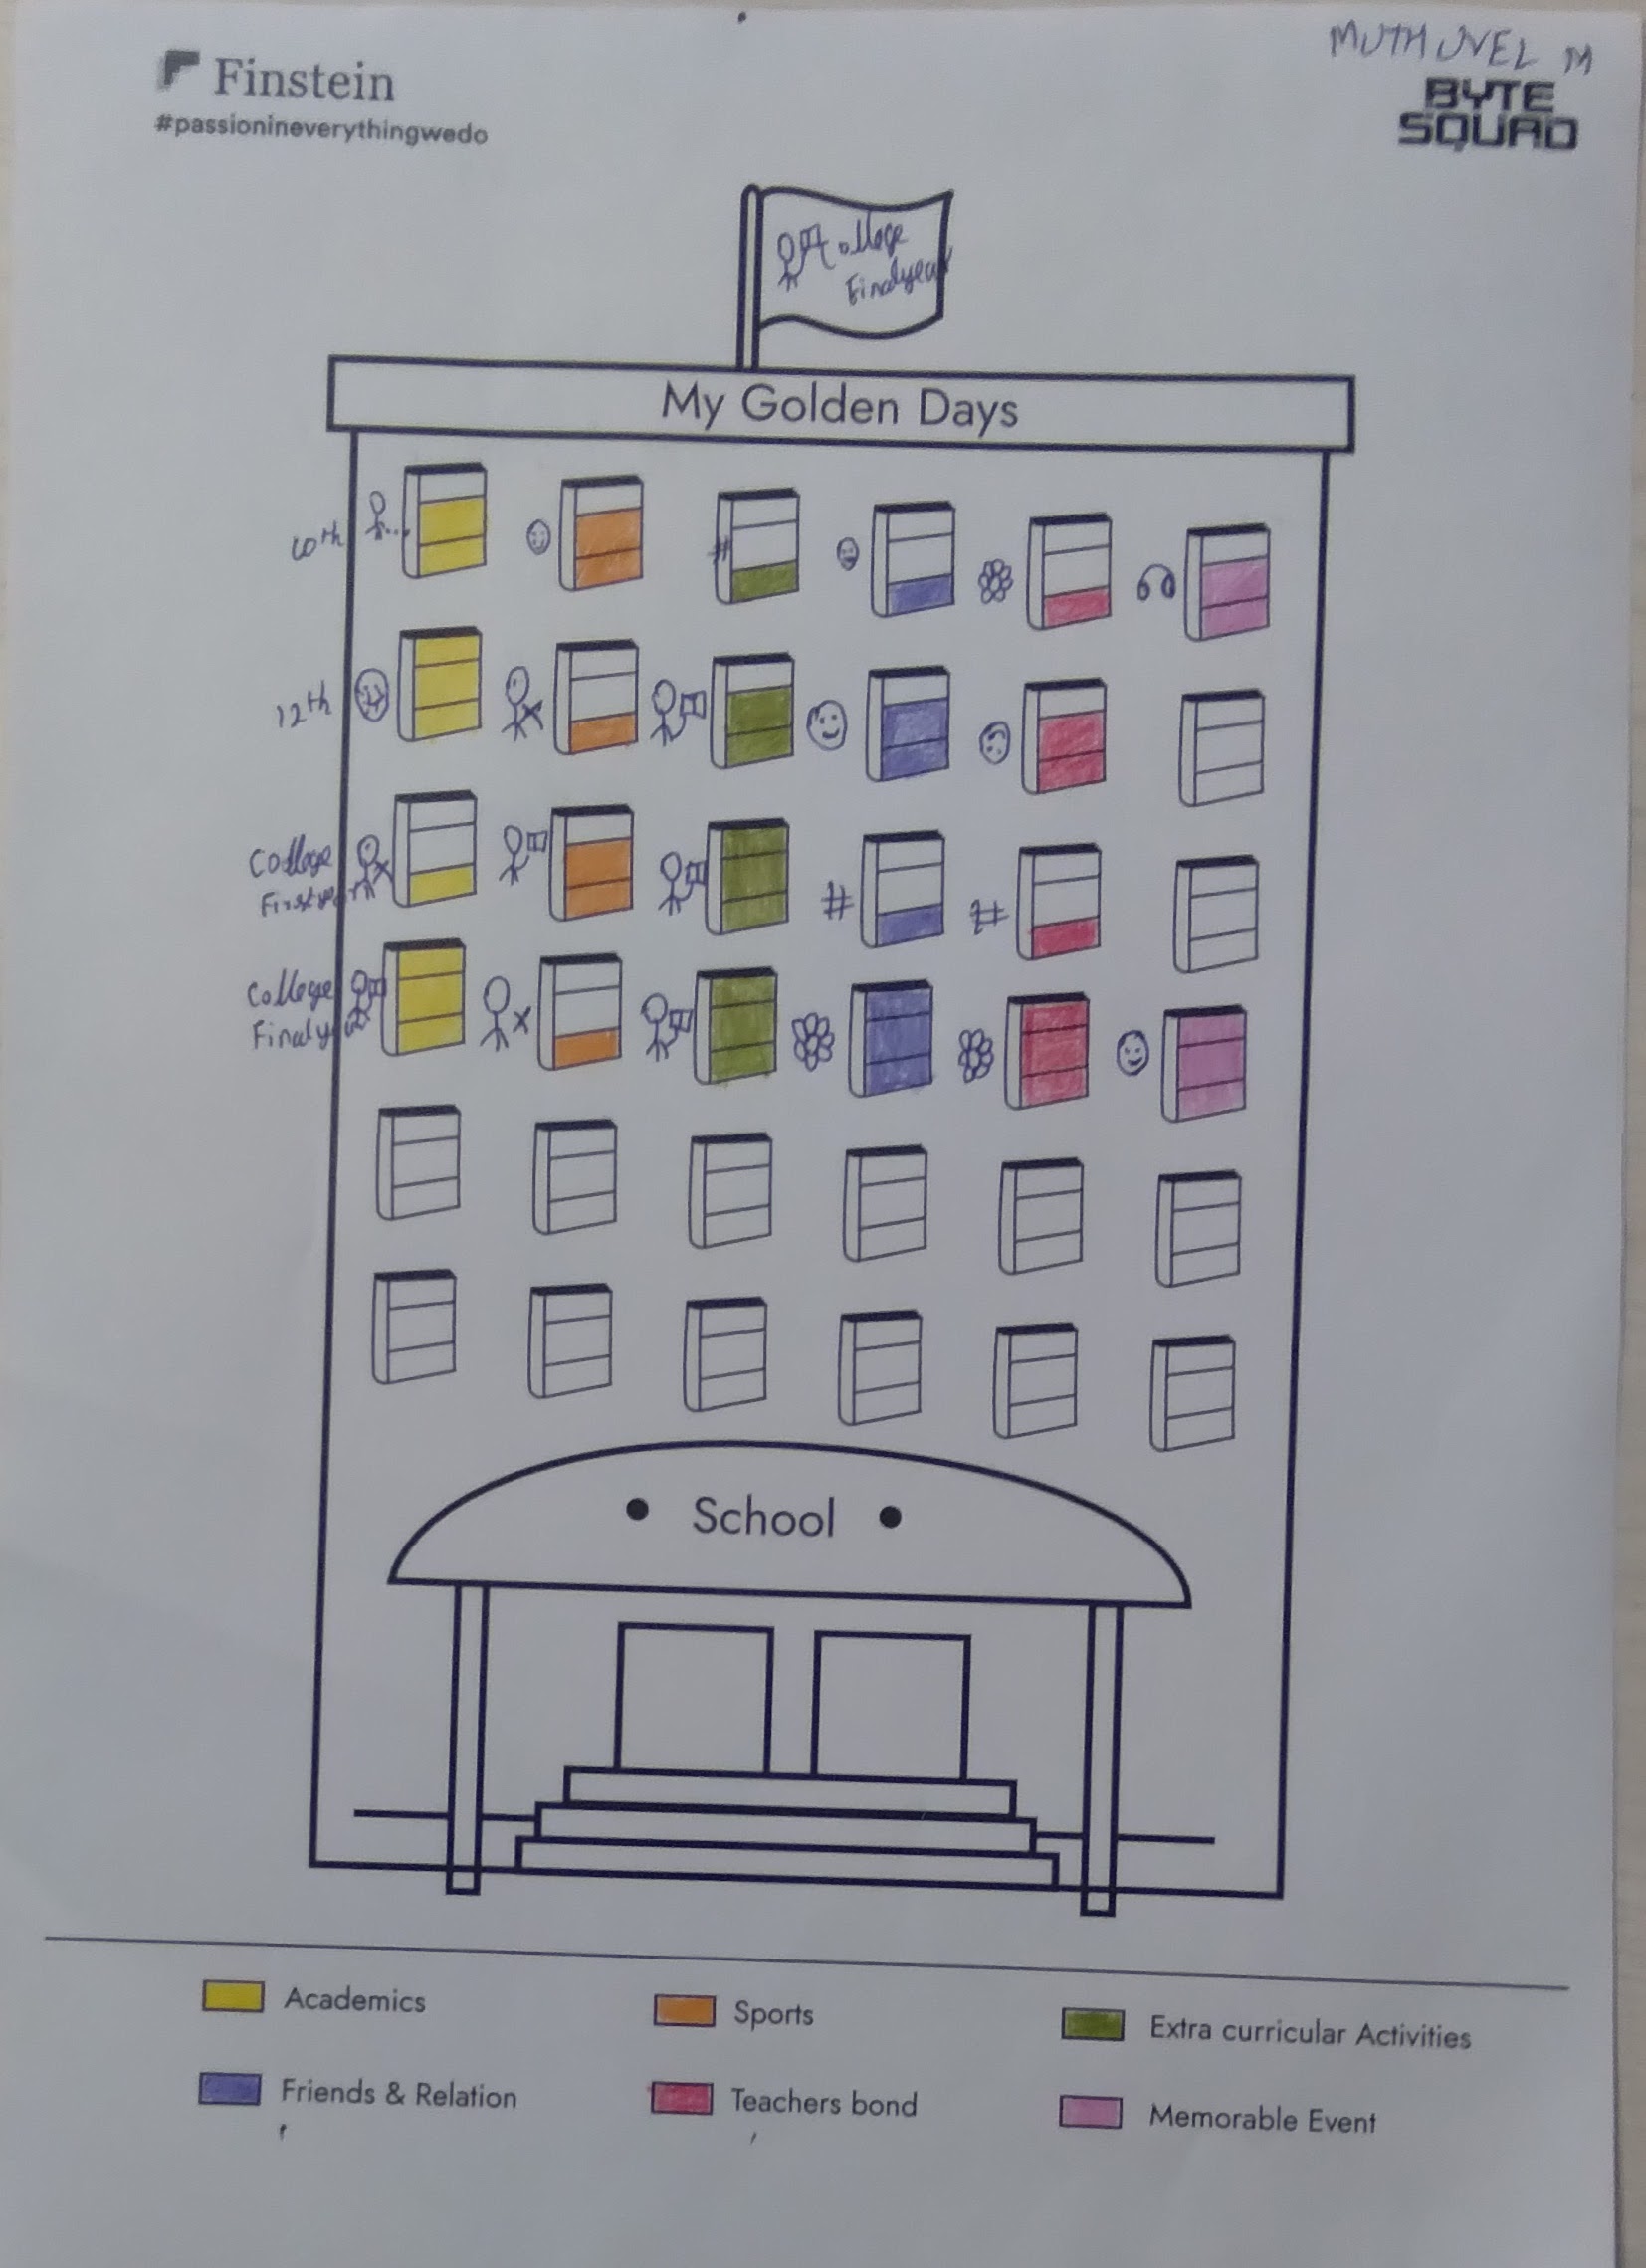 MUTHUVEL M
Finstein
#passionineverythingwedo
BYTE
SQUAD
College
Finalyear
My Golden Days
10th
#
12th
College
Firstyear
# #
College
Finalyear
• School •
Academics
Sports
Extra curricular Activities
Friends & Relation
Teachers bond
Memorable Event